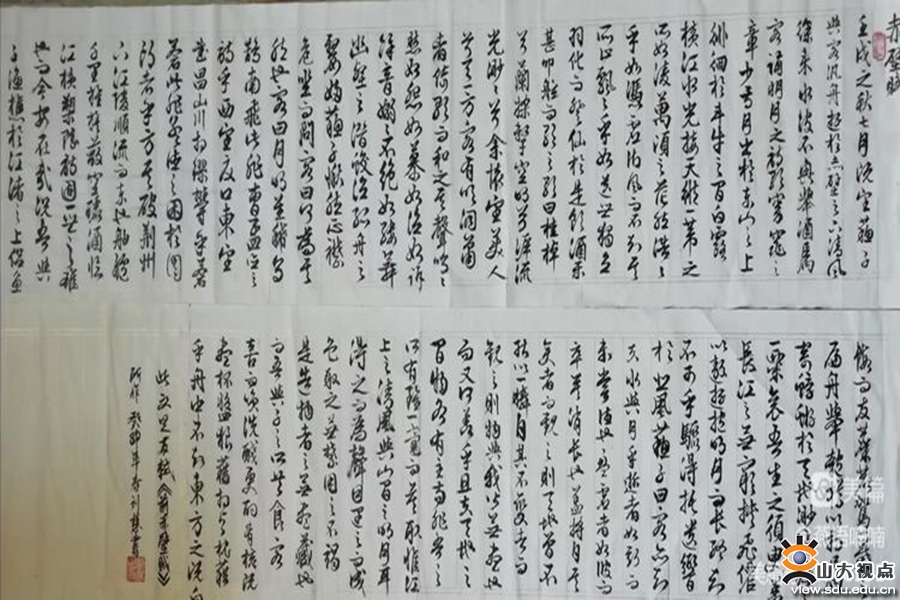 赤壁賦
壬戌之秋七月既望蘇子
與客汎舟遊於赤壁之下清風
徐來水波不興舉酒屬
客誦明月之詩歌窈窕之
章少焉月出於東山之上
徘徊於斗牛之間白露
橫江水光接天縱一葦之
所如凌萬頃之茫然浩浩
乎如馮虛御風而不知其
所止飄飄乎如遺世獨立
羽化而登仙於是飲酒樂
甚叩舷而歌之歌曰桂棹
兮蘭槳擊空明兮泝流
光渺渺兮余懷望美人
兮天一方客有吹洞簫
者倚歌而和之其聲嗚嗚
然如怨如慕如泣如訴
餘音嫋嫋不絕如縷舞
幽壑之潛蛟泣孤舟之
嫠婦蘇子愀然正襟
危坐而問客曰何為其
然也客曰月明星稀烏
鵲南飛此非曹孟德之
詩乎西望夏口東望
武昌山川相繆鬱乎蒼
蒼此非孟德之困於周
郎者乎方其破荊州
下江陵順流而東也舳艫
千里旌旗蔽空釃酒臨
江橫槊賦詩固一世之雄
也而今安在哉況吾與
子漁樵於江渚之上侶魚
蝦而友麋鹿駕一葉之
扁舟舉匏樽以相
寄蜉蝣於天地渺
一粟哀吾生之須臾羨
長江之無窮挾飛仙
以遨遊抱明月而長終知
不可乎驟得托遺響
於悲風蘇子曰客亦知
夫水與月乎逝者如斯而
未嘗往也盈虛者如彼而
卒莫消長也蓋將自其
變者而觀之則天地曾不
能以一瞬自其不變者而
觀之則物與我皆無盡也
而又何羨乎且夫天地之
間物各有主苟非吾之
所有雖一毫而莫取惟江
上之清風與山間之明月耳
得之而為聲目遇之而成
色取之無禁用之不竭
是造物者之無盡藏也
而吾與子之所共食客
喜而笑洗盞更酌肴核既
盡杯盤狼藉相與枕藉
乎舟中不知東方之既白
此文是苏轼《前赤壁賦》
所作 癸卯年春刘慧書
美篇
英语喃喃
山大视点
view.sdu.edu.cn